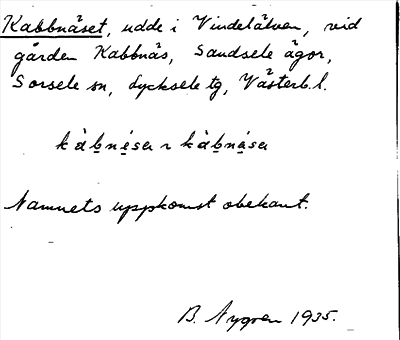 Kabbnäset, udde i Vindelälven, vid
gården Kabbnäs, Sandsele ägor,
Sorsele sn, Lycksele tg, Västerb.l.
kàb̲nésa ~ kàb̲nása
Namnets uppkomst obekant.
B. Nygren 1935.